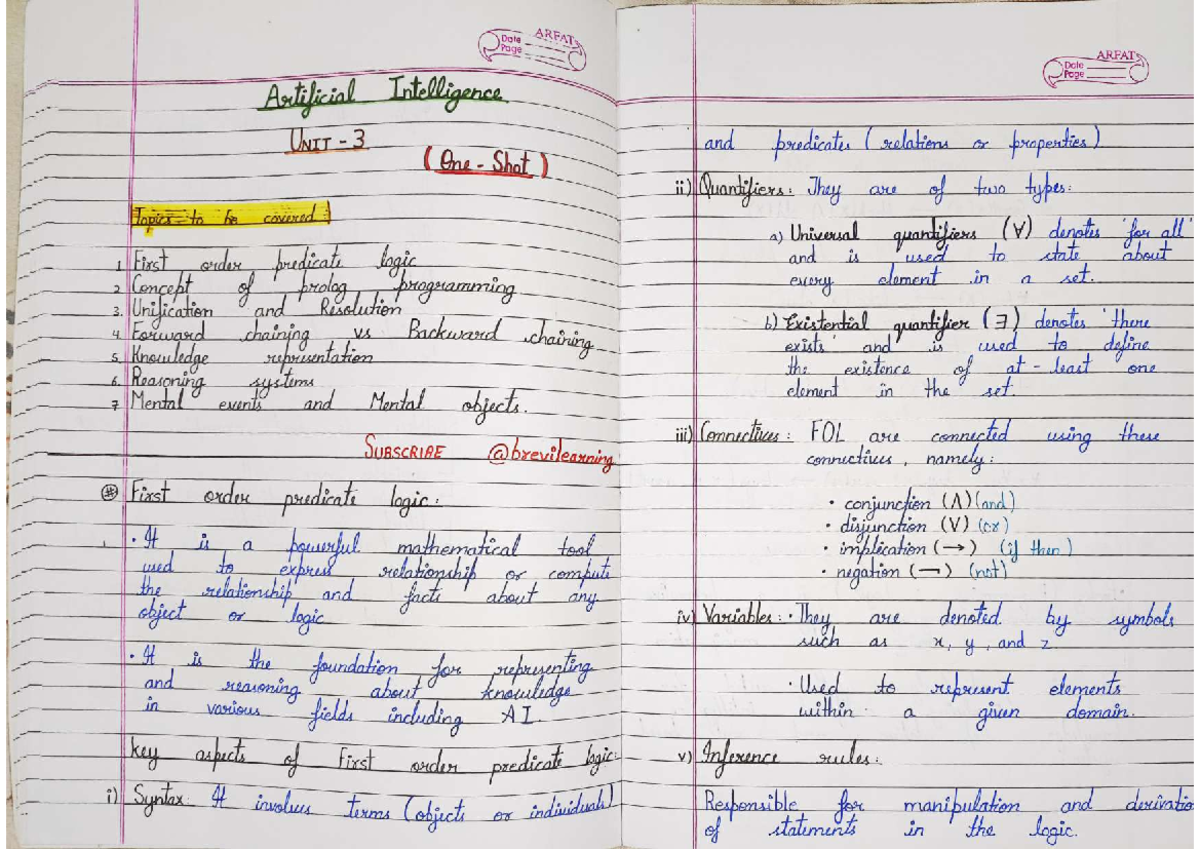 ARFAT
Date
Page
Artificial Intelligence
UNIT - 3
(One - Shot)
Topics to be covered :
1. First order predicate logic
2. Concept of prolog programming
3. Unification and Resolution
4. Forward chaining vs Backward chaining
5. Knowledge representation
6. Reasoning systems
7 Mental events and Mental objects.
SUBSCRIBE @brevilearning
# First order predicate logic :
• It is a powerful mathematical tool
used to express relationship or compute
the relationship and facts about any
object or logic
• It is the foundation for representing
and reasoning about knowledge
in various fields including AI
Key aspects of First order predicate logic:
i) Syntax: It involves terms (objects or individuals)
ARFAT
Date
Page
and predicates (relations or properties)
ii) Quantifiers: They are of two types:
a) Universal quantifiers (∀) denotes 'for all'
and is used to state about
every element in a set.
b) Existential quantifier (∃) denotes 'there
exists' and is used to define
the existence of at-least one
element in the set.
iii) Connectives : FOL are connected using these
connectives, namely:
• conjunction (Λ) (and)
• disjunction (V) (or)
• implication (→) (if then)
• negation (¬) (not)
iv) Variables : • They are denoted by symbols
such as x, y, and z
• Used to represent elements
within a given domain.
v) Inference rules:
Responsible for manipulation and derivatio
of statements in the logic.